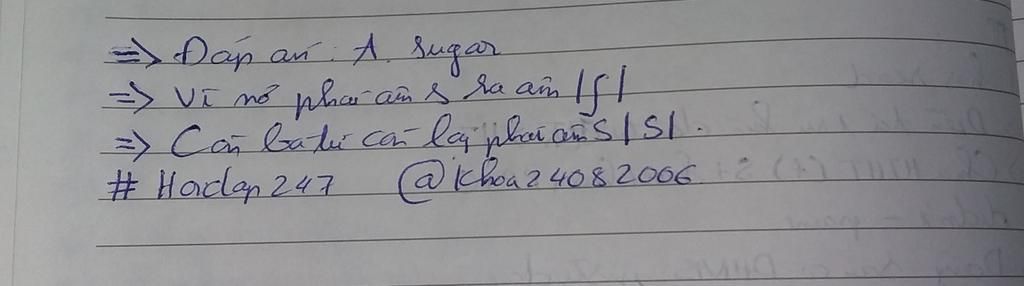 => Đáp án: A. sugar
=> Vì nó phát âm s ra âm /ʃ/
=> Còn ba từ còn lại phát âm S /S/.
# Hoidap247 @Khoa24082006